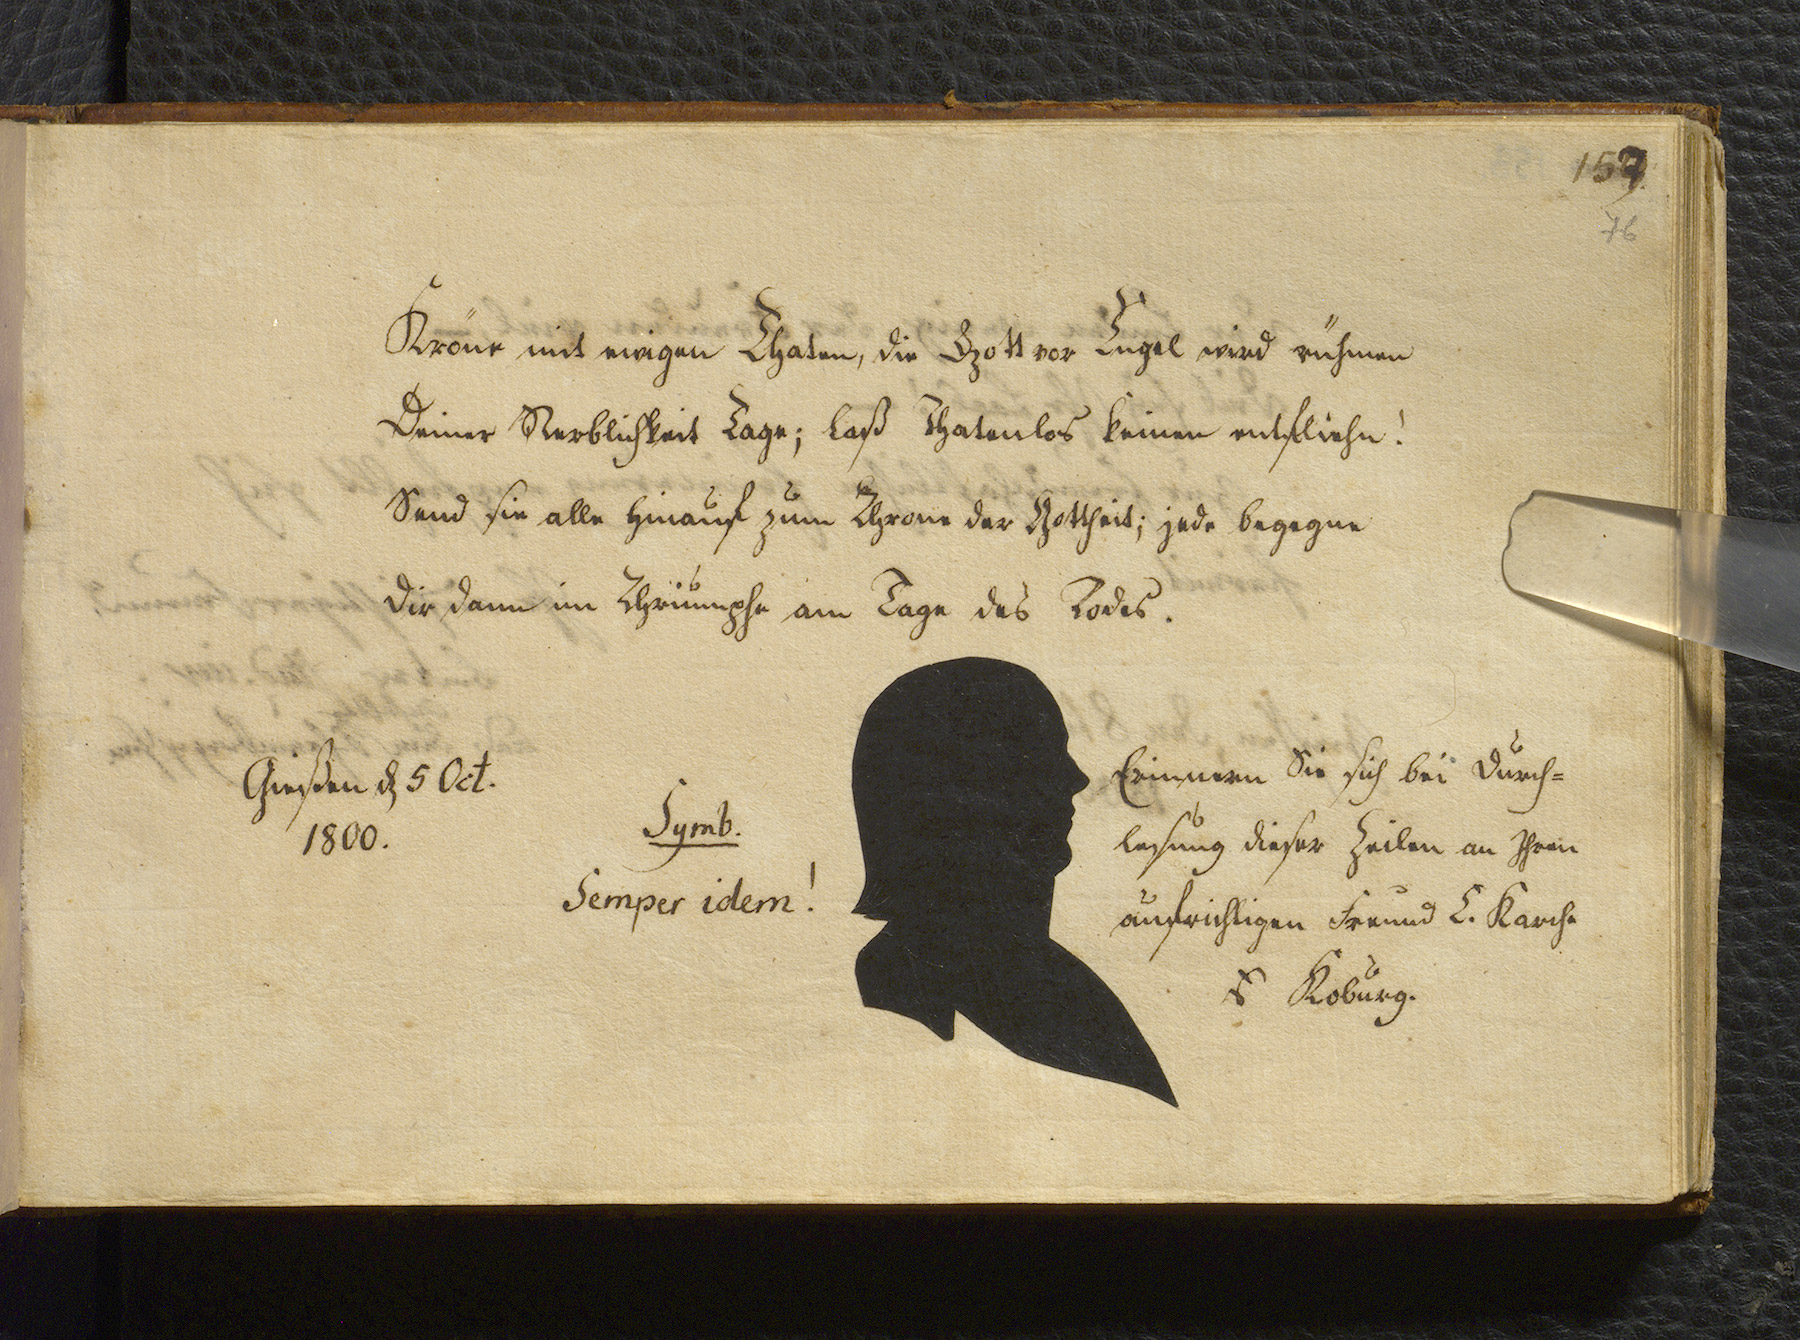 157.
76
Kröne mit ewigen Thaten, die Gott vor Engel wird rühmen
Deiner Sterblichkeit Tage; laß Thatenlos keinen entfliehn!
Send sie alle hinauf zum Throne der Gottheit; jede begegne
Dir dann im Thriumphe am Tage des Todes.
Gießen d 5 Oct.
1800.
Symb.
Semper idem!
Erinnern Sie sich bei Durch=
lesung dieser Zeilen an Ihren
aufrichtigen Freund C. Karche
Koburg.